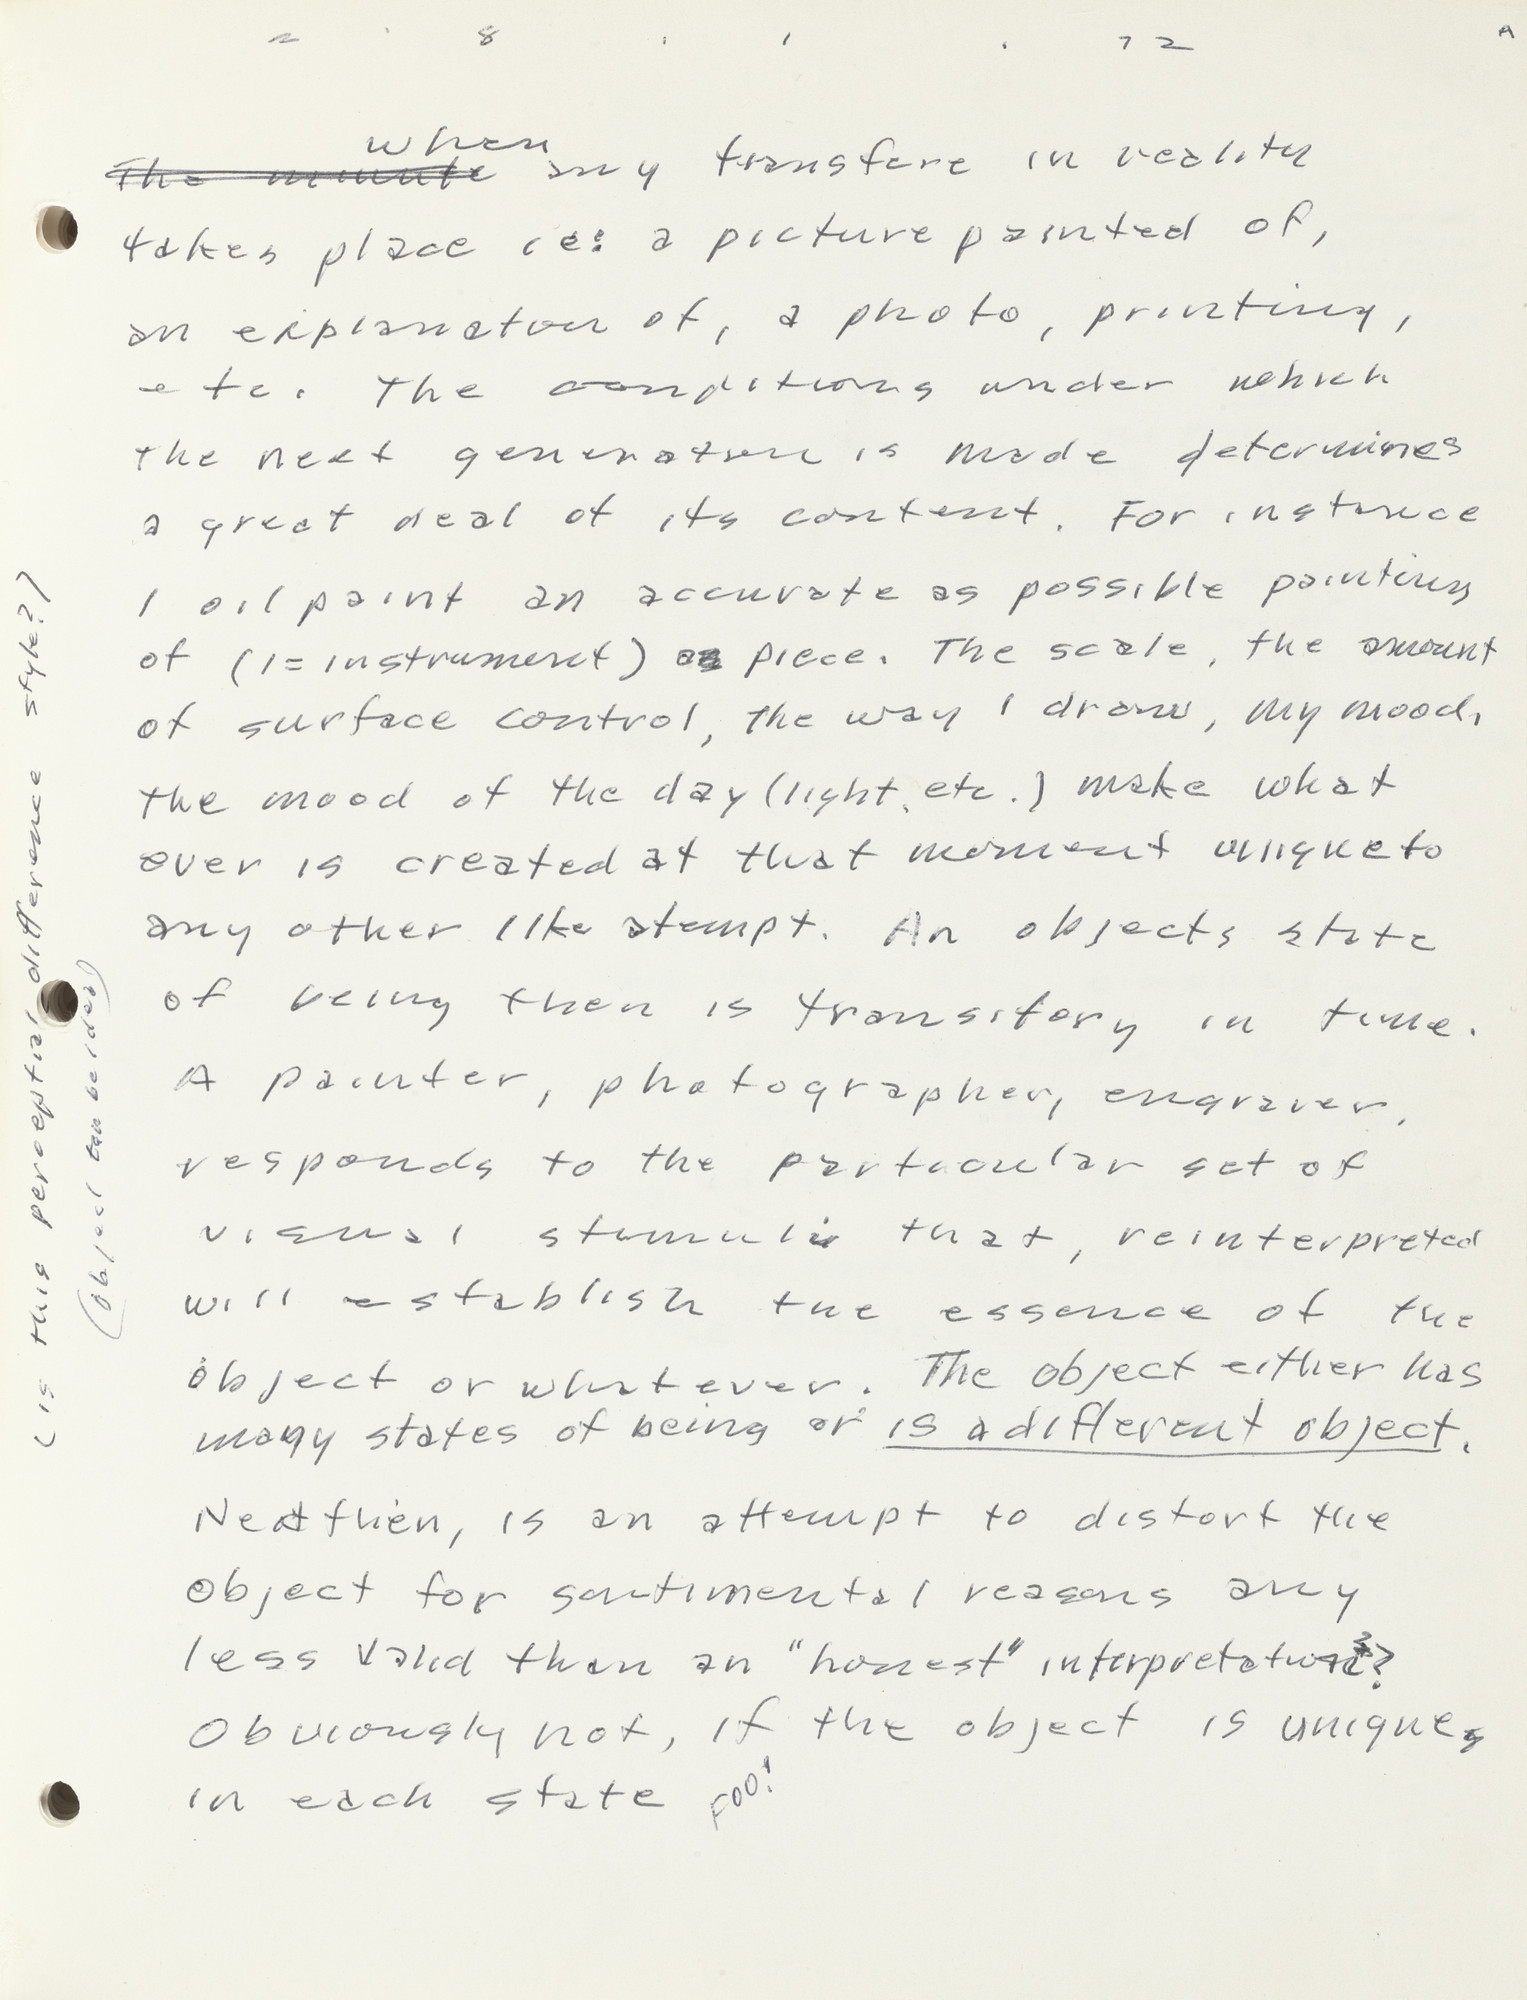 2 . 8 . 1 . 72 A
when
The minute any transfere in reality
takes place ie: a picture painted of,
an explanation of, a photo, printing,
etc. The conditions under which
the next generation is made determines
a great deal of its content. For instance
I oil paint an accurate as possible painting
of (1 = instrument) piece. The scale, the amount
of surface control, the way I draw, my mood,
the mood of the day (light, etc.) make what
ever is created at that moment unique to
any other like atempt. An objects state
of being then is transitory in time.
A painter, photographer, engraver,
responds to the particular set of
visual stimuli that, reinterpreted
will establish the essence of the
object or whatever. The object either has
many states of being or is a different object.
Next then, is an attempt to distort the
object for sentimental reasons any
less valid than an "honest" interpretation?
Obviously not, if the object is unique,
in each state FOO!
(is this perceptial difference style?)
(object can be idea)